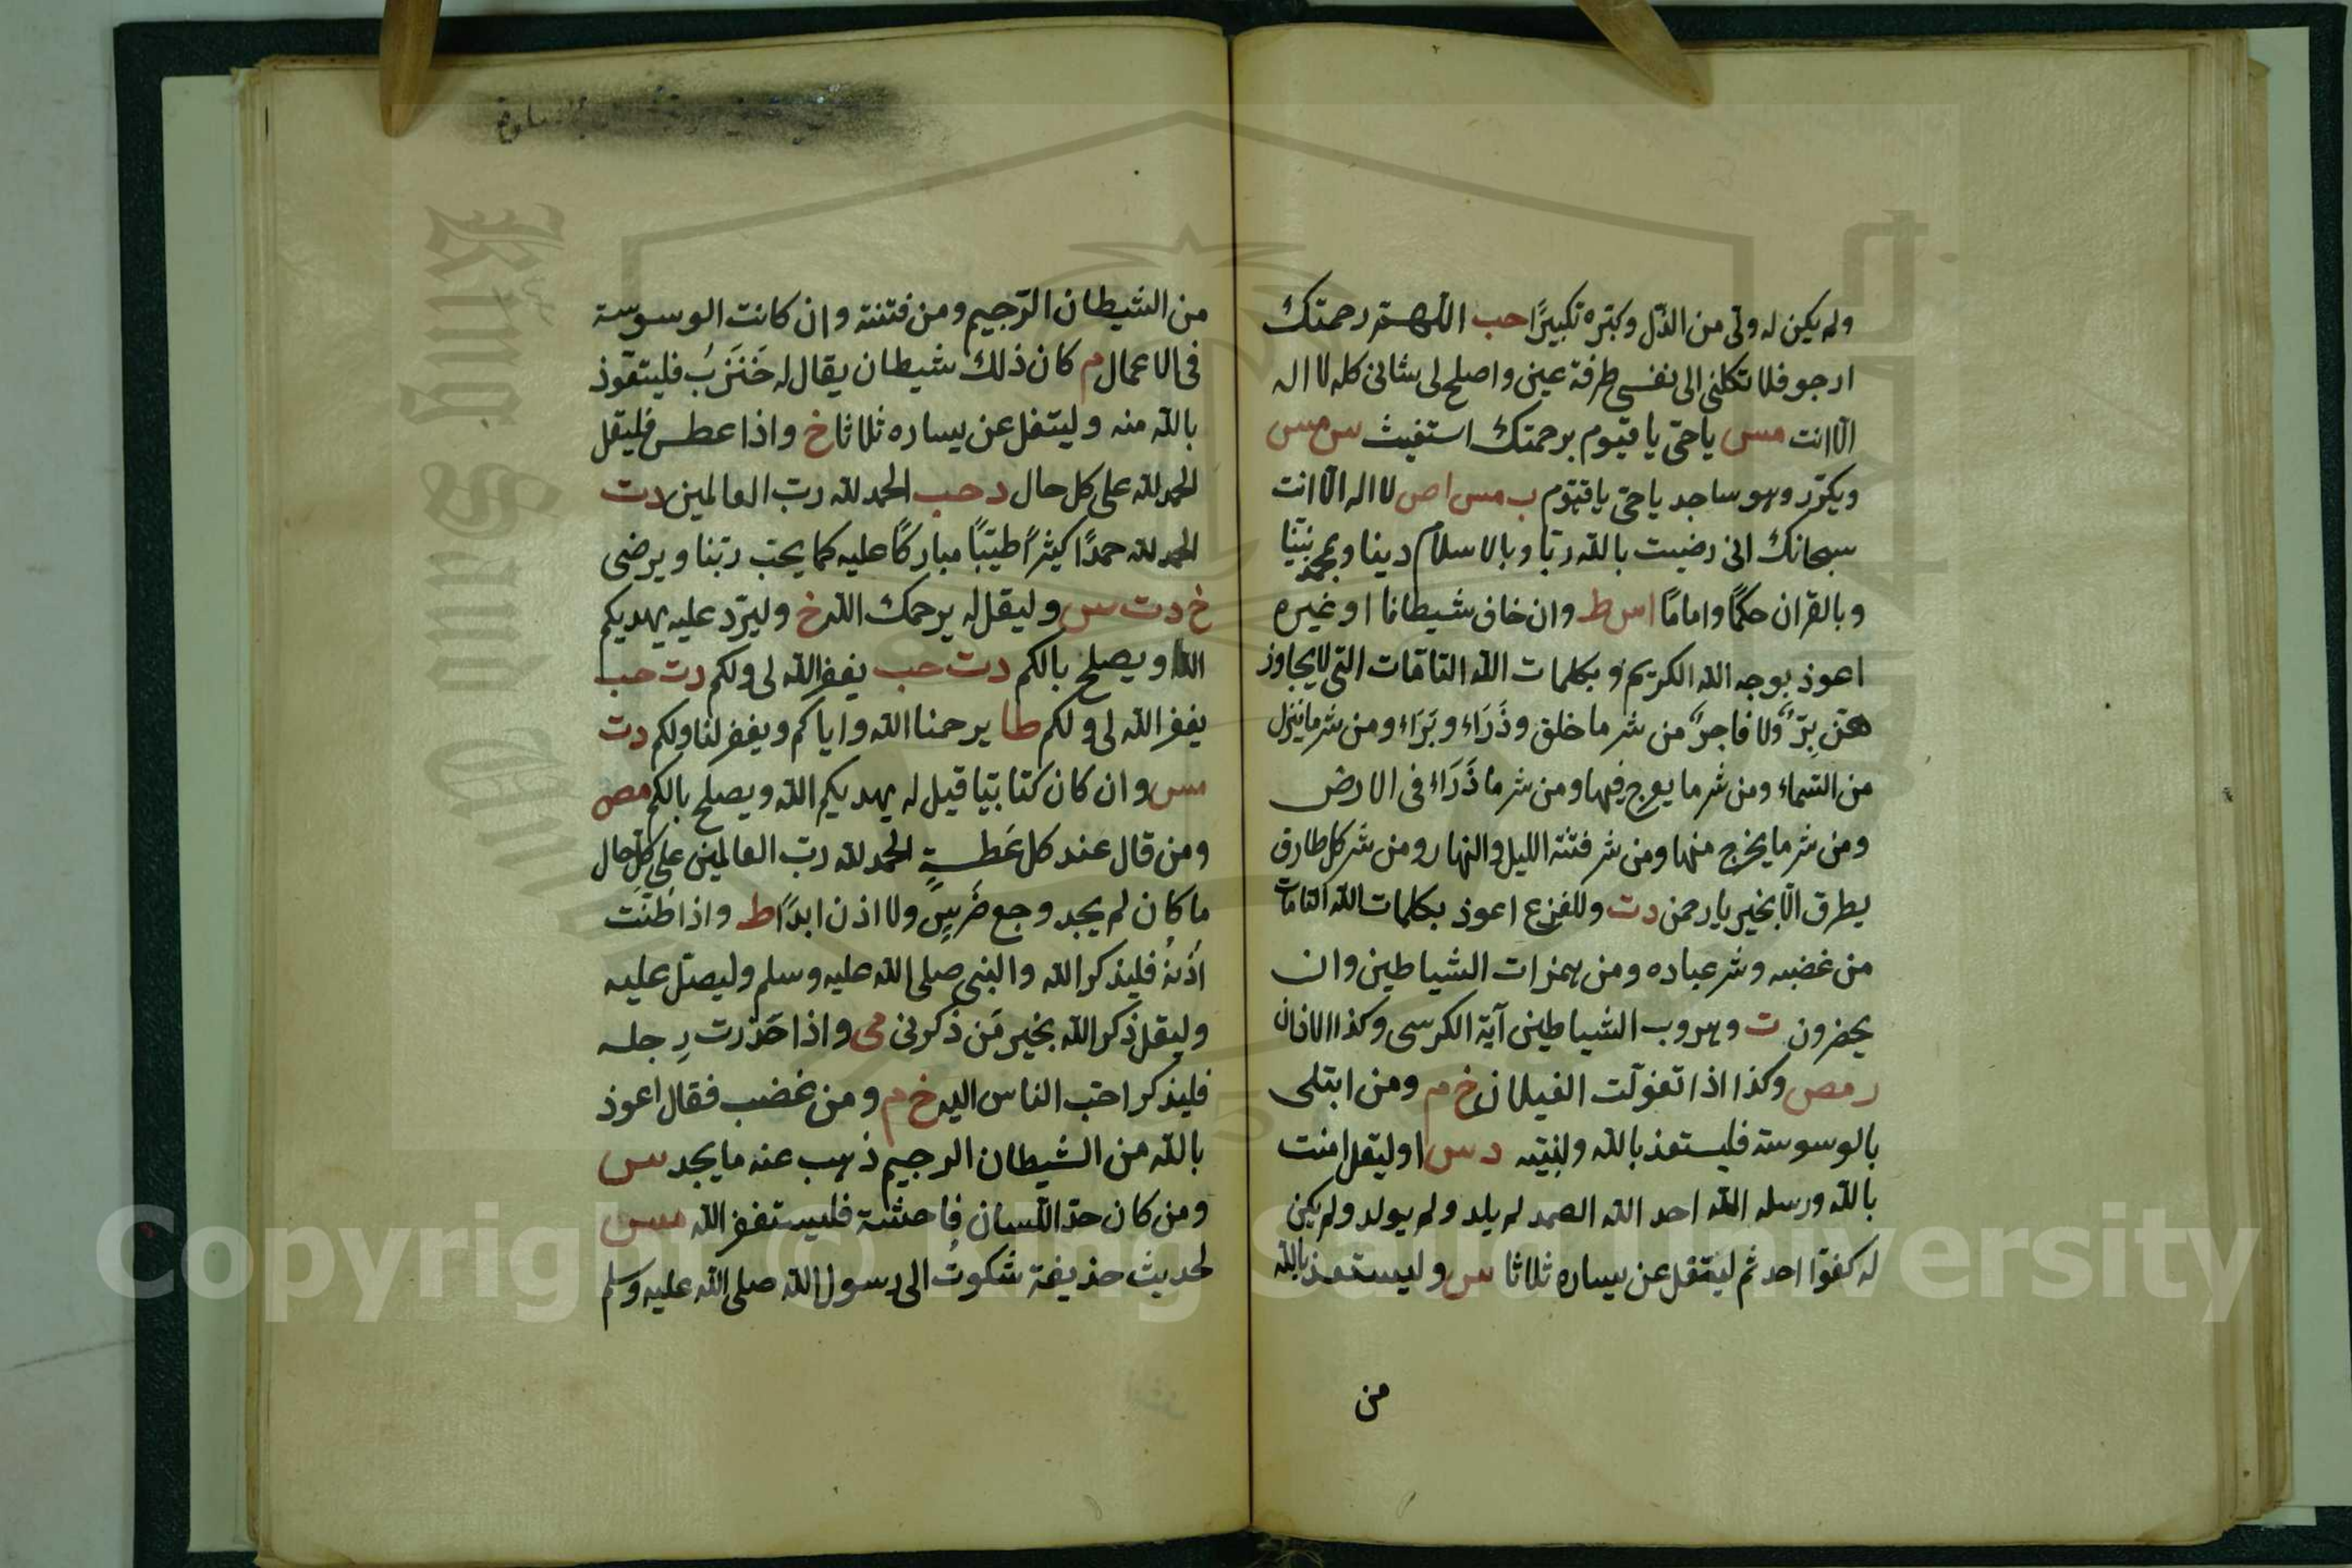 ولم يكن له ولي من الذل وكبره تكبيرًا حب اللهم رحمتك
ارجو فلا تكلني الى نفسي طرفة عين واصلح لي شاني كله لا اله
الا انت مس يا حي يا قيوم برحمتك استغيث س مس
ويكرر وهو ساجد يا حي يا قيوم ب مس اص لا اله الا انت
سبحانك اني رضيت بالله ربا وبالاسلام دينا وبمحمد نبيّا
وبالقران حكمًا وامامًا اس ط وان خاف شيطانا او غيره
اعوذ بوجه الله الكريم وبكلمات الله التامّات التي لا يجاوز
هنّ بِرٌّ ولا فاجرٌ من شر ما خلق وذَرَاء وبَرَاء ومن شر ما ينزل
من السّماء ومن شر ما يعرج فيها ومن شر ما ذَرَاء في الارض
ومن شر ما يخرج منها ومن شر فتنة الليل والنهار ومن شر كل طارق
يطرق الّا بخير يا رحمن دت وللفزع اعوذ بكلمات الله التامات
من غضبه وشر عباده ومن همزات الشياطين وان
يحضرون ت وهروب الشياطين آية الكرسى وكذا الاذان
ر مص وكذا اذا تغوّلت الغيلان خ م ومن ابتلى
بالوسوسة فليستعذ بالله ولينته د س او ليقل امنت
بالله ورسله الله احد الله الصمد لم يلد ولم يولد ولم يكن
له كفوّا احد ثم ليتفل عن يساره ثلاثا س وليستعذ بالله
من
من الشيطان الرّجيم ومن فتنته وان كانت الوسوسة
في الاعمال م كان ذلك شيطان يقال له خَنزَبُ فليتعّوذ
بالله منه وليتفل عن يساره ثلاثا خ واذا عطس فليقل
الحمد لله على كل حال د حب الحمد لله ربّ العالمين دت
الحمد لله حمدًا كثيرًا طيّبًا مباركًا عليه كما يحبّ ربّنا ويرضى
خ دت س وليقل له يرحمك الله خ وليرّد عليه يهديكم
الله ويصلح بالكم دت حب يغفر الله لى ولكم دت حب
يغفر الله لى ولكم طا يرحمنا الله واياكم ويغفر لنا ولكم دت
مس وان كان كتابيّا قيل له يهديكم الله ويصلح بالكم مص
ومن قال عند كل عَطسةٍ الحمد لله ربّ العالمين على كلّ حال
ما كان لم يجد وجع ضَرسٍ ولا اذن ابدًا ط واذا طَنّت
اذُنهُ فليذكر الله والنبى صلى الله عليه وسلم وليصل عليه
وليقل ذكر الله بخير مَن ذكرنى مى واذا خَدَرت رِجله
فليذكر احبّ الناس اليه خ م ومن غضب فقال اعوذ
بالله من الشيطان الرجيم ذهب عنه ما يجد س
ومن كان حدّ اللّسان فاحشة فليستغفر الله مس
لحديث حذيفة شكوتُ الى رسول الله صلى الله عليه وسلم
Copyright © King Saud University